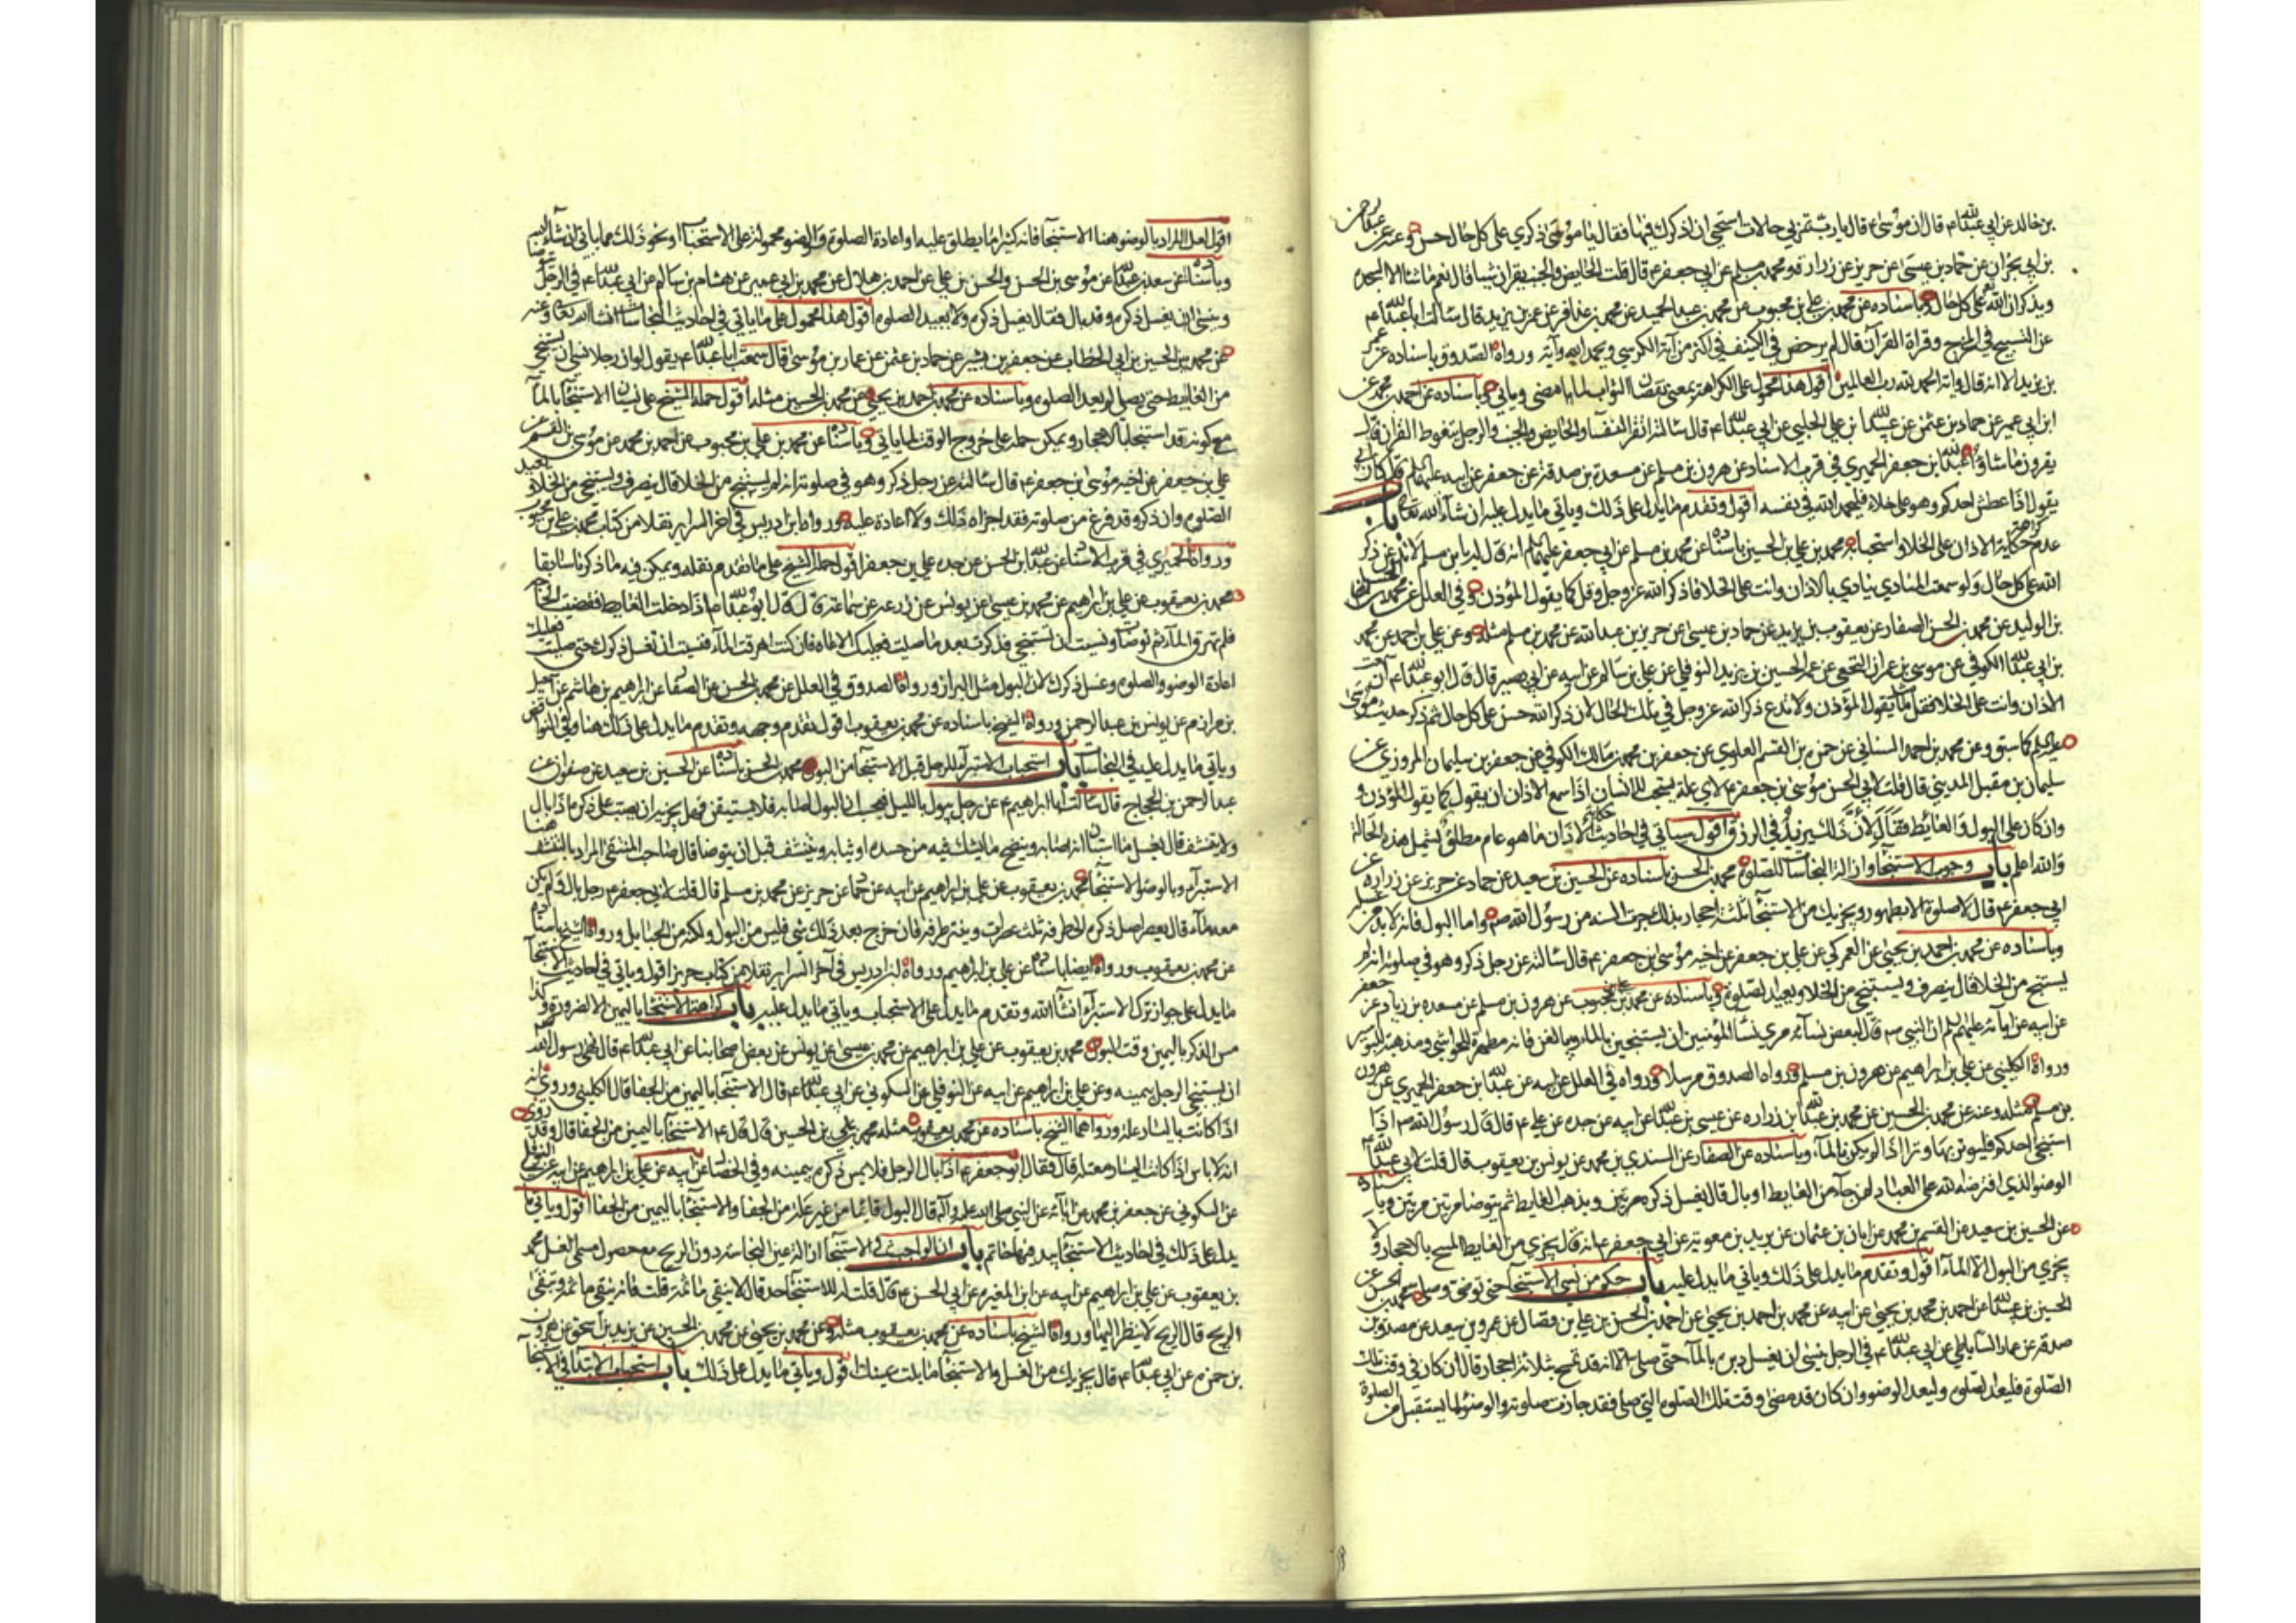 بن خالد عن ابي عبدالله ع قال ان موسى ع قال يا رب تمر بي حالات استحيي ان اذكرك فيها فقال يا موسى ذكري على كل حال حسن وعنه عن عبدالرحمن
بن ابي نجران عن حماد بن عيسى عن حريز عن زرارة ومحمد بن مسلم عن ابي جعفر ع قال قلت الحايض والجنب يقرآن شيئا قال نعم ما شاءا الا السجدة
ويذكران الله تعالى على كل حال وباسناده عن محمد بن علي بن محبوب عن محمد بن عبد الحميد عن محمد بن عذافر عن عمر بن يزيد قال سالت ابا عبدالله ع
عن التسبيح في المخرج وقراءة القرآن قال لم يرخص في الكنيف في اكثر من آية الكرسي ويحمد الله وآية ورواه الصدوق باسناده عن عمر
بن يزيد الا انه قال وآية الحمد لله رب العالمين اقول هذا محمول على الكراهة بمعنى نقصان الثواب لما مضى وياتي وباسناده عن احمد بن محمد عن
ابن ابي عمير عن حماد بن عثمن عن عبيدالله بن علي الحلبي عن ابي عبدالله ع قال سالته اتقرء النفساء والحايض والجنب والرجل يتغوط القرآن قال
يقرؤن ما شاؤا عبدالله بن جعفر الحميري في قرب الاسناد عن هرون بن مسلم عن مسعدة بن صدقة عن جعفر عن ابيه عليهما السلم قال كان ابي
يقول اذا عطش احدكم وهو على خلاء فليحمد الله في نفسه اقول وتقدم ما يدل على ذلك وياتي ما يدل عليه ان شاء الله تعالى باب
عدم كراهة حكاية الاذان على الخلاء واستحبابه محمد بن علي بن الحسين باسناده عن محمد بن مسلم عن ابي جعفر عليهما السلم انه قال له يا ابن مسلم لا تدعن ذكر
الله على كل حال ولو سمعت المنادي ينادي بالاذان وانت على الخلاء فاذكر الله عز وجل وقل كما يقول المؤذن وفي العلل عن محمد بن الحسن
بن الوليد عن محمد بن الحسن الصفار عن يعقوب بن يزيد عن حماد بن عيسى عن حريز بن عبدالله عن محمد بن مسلم مثله وعن علي بن احمد عن محمد
بن ابي عبدالله الكوفي عن موسى بن عمران النخعي عن عمه الحسين بن يزيد النوفلي عن علي بن سالم عن ابيه عن ابي بصير قال قال ابو عبدالله ع ان سمعت
الاذان وانت على الخلاء فقل مثل ما يقول المؤذن ولا تدع ذكر الله عز وجل في تلك الحال لان ذكر الله حسن على كل حال ثم ذكر حديث موسى
عليه السلم كما سبق وعن محمد بن احمد السناني عن حمزة بن القسم العلوي عن جعفر بن محمد بن مالك الكوفي عن جعفر بن سليمان المروزي عن
سليمان بن مقبل المديني قال قلت لابي الحسن موسى بن جعفر ع لاي علة يستحب للانسان اذا سمع الاذان ان يقول كما يقول المؤذن و
وان كان على البول والغايط فقال لان ذلك يزيد في الرزق اقول سياتي في احاديث حكاية الاذان ما هو عام مطلق يشمل هذه الحالة
والله اعلم باب وجوب الاستنجاء وازالة النجاسات للصلوة محمد بن الحسن باسناده عن الحسين بن سعيد عن حماد عن حريز عن زرارة عن
ابي جعفر ع قال لا صلوة الا بطهور ويجزيك من الاستنجاء ثلثة احجار بذلك جرت السنة من رسول الله ص واما البول فانه لا بد من غسله
وباسناده عن محمد بن احمد بن يحيى عن العمركي عن علي بن جعفر عن اخيه موسى بن جعفر ع قال سالته عن رجل ذكر وهو في صلوته انه لم
يستنج من الخلاء قال ينصرف ويستنجي من الخلاء ويعيد الصلوة وباسناده عن محمد بن علي بن محبوب عن هرون بن مسلم عن مسعدة بن زياد عن جعفر
عن ابيه عن آبائه عليهم السلم ان النبي ص قال لبعض نسائه مري نساء المؤمنين ان يستنجين بالماء ويبالغن فانه مطهرة للحواشي ومذهبة للبواسير
ورواه الكليني عن علي بن ابراهيم عن هرون بن مسلم ورواه الصدوق مرسلا ورواه في العلل عن ابيه عن عبدالله بن جعفر الحميري عن هرون
بن مسلم مثله وعنه عن محمد بن الحسين عن محمد بن عبدالله بن زرارة عن عيسى بن عبدالله عن ابيه عن جده عن علي ع قال قال رسول الله ص اذا
استنجى احدكم فليوتر بها وترا اذا لم يكن الماء وباسناده عن الصفار عن السندي بن محمد عن يونس بن يعقوب قال قلت لابي عبدالله ع
الوضوء الذي افترضه الله على العباد لمن جاء من الغايط او بال قال يغسل ذكره ويذهب الغايط ثم يتوضا مرتين مرتين وباسناده
عن الحسين بن سعيد عن القسم بن محمد عن ابان بن عثمان عن بريد بن معوية عن ابي جعفر ع انه قال يجزي من الغايط المسح بالاحجار ولا
يجزي من البول الا الماء اقول وتقدم ما يدل على ذلك وياتي ما يدل عليه باب حكم من نسي الاستنجاء حتى توضا وصلى محمد بن الحسن عن
الحسين بن عبيدالله عن احمد بن محمد بن يحيى عن ابيه عن محمد بن احمد بن يحيى عن احمد بن الحسن بن علي بن فضال عن عمرو بن سعيد عن مصدق بن
صدقة عن عمار الساباطي عن ابي عبدالله ع في الرجل ينسى ان يغسل دبره بالماء حتى صلى الا انه قد تمسح بثلاثة احجار قال ان كان في وقت تلك
الصلوة فليعد الصلوة وليعد الوضوء وان كان قد مضى وقت تلك الصلوة التي صلى فقد جازت صلوته وليتوضا لما يستقبل من الصلوة
اقول لعل المراد بالوضوء هنا الاستنجاء فانه كثيرا ما يطلق عليه واعادة الصلوة والوضوء محمولة على الاستحباب او نحو ذلك مما ياتي ان شاء الله
وباسناده عن سعد بن عبدالله عن موسى بن الحسن والحسن بن علي عن احمد بن هلال عن محمد بن ابي عمير عن هشام بن سالم عن ابي عبدالله ع في الرجل يتوضا
وينسى ان يغسل ذكره وقد بال فقال يغسل ذكره ولا يعيد الصلوة اقول هذا محمول على ما ياتي في احاديث النجاسات ان شاء الله تعالى وعنه
عن محمد بن الحسين بن ابي الخطاب عن جعفر بن بشير عن حماد بن عثمن عن عمار بن موسى قال سمعت ابا عبدالله ع يقول لو ان رجلا نسي ان يستنجي
من الغايط حتى يصلي لم يعد الصلوة وباسناده عن محمد بن احمد بن يحيى عن محمد بن الحسين مثله اقول حمله الشيخ على نسيان الاستنجاء بالماء
مع كونه قد استنجى بالاحجار ويمكن حمله على خروج الوقت لما ياتي وباسناده عن محمد بن علي بن محبوب عن احمد بن محمد عن موسى بن القسم عن
علي بن جعفر عن اخيه موسى بن جعفر ع قال سالته عن رجل ذكر وهو في صلوته انه لم يستنج من الخلاء قال ينصرف ويستنجي من الخلاء ويعيد
الصلوة وان ذكر وقد فرغ من صلوته فقد اجزاه ذلك ولا اعادة عليه ورواه ابن ادريس في آخر السراير نقلا من كتاب محمد بن علي بن محبوب
ورواه الحميري في قرب الاسناد عن عبدالله بن الحسن عن جده علي بن جعفر اقول حمله الشيخ على ما تقدم نقله ويمكن فيه ما ذكرناه سابقا
محمد بن يعقوب عن علي بن ابراهيم عن محمد بن عيسى عن يونس عن زرعة عن سماعة قال قال ابو عبدالله ع اذا دخلت الغايط فقضيت الحاجة
فلم تهرق الماء ثم توضات ونسيت ان تستنجي فذكرت بعد ما صليت فعليك الاعادة فان كنت اهرقت الماء فنسيت ان تغسل ذكرك حتى صليت فعليك
اعادة الوضوء والصلوة وغسل ذكرك لان البول مثل البراز ورواه الصدوق في العلل عن محمد بن الحسن عن الصفار عن ابراهيم بن هاشم عن اسمعيل
بن مرار عن يونس بن عبد الرحمن ورواه الشيخ باسناده عن محمد بن يعقوب اقول تقدم وجهه وتقدم ما يدل على ذلك هنا وفي النواقض
وياتي ما يدل عليه في النجاسات باب استحباب الاستبراء للرجل قبل الاستنجاء من البول محمد بن الحسن باسناده عن الحسين بن سعيد عن صفوان عن
عبد الرحمن بن الحجاج قال سالت ابا ابراهيم ع عن رجل يبول بالليل فيحسب ان البول اصابه فلا يستيقن فهل يجزيه ان يصب على ذكره اذا بال
ولا يتنشف قال يغسل ما استبان انه اصابه وينضح ما يشك فيه من جسده او ثيابه ويتنشف قبل ان يتوضا قال صاحب المنتقى المراد بالتنشف هنا
الاستبراء وبالوضوء الاستنجاء محمد بن يعقوب عن علي بن ابراهيم عن ابيه عن حماد عن حريز عن محمد بن مسلم قال قلت لابي جعفر ع رجل بال ولم يكن
معه ماء قال يعصر اصل ذكره الى طرفه ثلث عصرات وينتر طرفه فان خرج بعد ذلك شيء فليس من البول ولكنه من الحبايل ورواه الشيخ باسناده
عن محمد بن يعقوب ورواه ايضا باسناده عن علي بن ابراهيم ورواه ابن ادريس في آخر السراير نقلا من كتاب حريز اقول وياتي في احاديث الاستنجاء
ما يدل على جواز ترك الاستبراء ان شاء الله وتقدم ما يدل على الاستحباب وياتي ما يدل عليه باب كراهة الاستنجاء باليمين الا لضرورة وكذا
مس الذكر باليمين وقت البول محمد بن يعقوب عن علي بن ابراهيم عن محمد بن عيسى عن يونس عن بعض اصحابنا عن ابي عبدالله ع قال نهى رسول الله ص
ان يستنجي الرجل بيمينه وعن علي بن ابراهيم عن ابيه عن النوفلي عن السكوني عن ابي عبدالله ع قال الاستنجاء باليمين من الجفاء قال الكليني وروي انه
اذا كانت باليسار علة ورواهما الشيخ باسناده عن محمد بن يعقوب مثله محمد بن علي بن الحسين قال قال ع الاستنجاء باليمين من الجفاء قال وقد روي
انه لا باس اذا كانت اليسار معتلة قال وقال ابو جعفر ع اذا بال الرجل فلا يمس ذكره بيمينه وفي الخصال عن ابيه عن علي بن ابراهيم عن ابيه عن النوفلي
عن السكوني عن جعفر بن محمد عن آبائه عن النبي صلى الله عليه وآله قال البول قائما من غير علة من الجفاء والاستنجاء باليمين من الجفاء اقول وياتي ما
يدل على ذلك في احاديث الاستنجاء بيد فيها خاتم باب ان الواجب في الاستنجاء ازالة عين النجاسة دون الريح مع حصول مسمى الغسل محمد
بن يعقوب عن علي بن ابراهيم عن ابيه عن ابن المغيرة عن ابي الحسن ع قال قلت له للاستنجاء حد قال لا ينقي ما ثمة قلت فانه ينقي ما ثمة وتبقى
الريح قال الريح لا ينظر اليها ورواه الشيخ باسناده عن محمد بن يعقوب مثله وعن محمد بن يحيى عن محمد بن الحسين عن يزيد بن اسحق عن هرون
بن حمزة عن ابي عبدالله ع قال يجزيك من الغسل والاستنجاء ما بلت يمينك اقول وياتي ما يدل على ذلك باب استحباب الابتداء في الاستنجاء